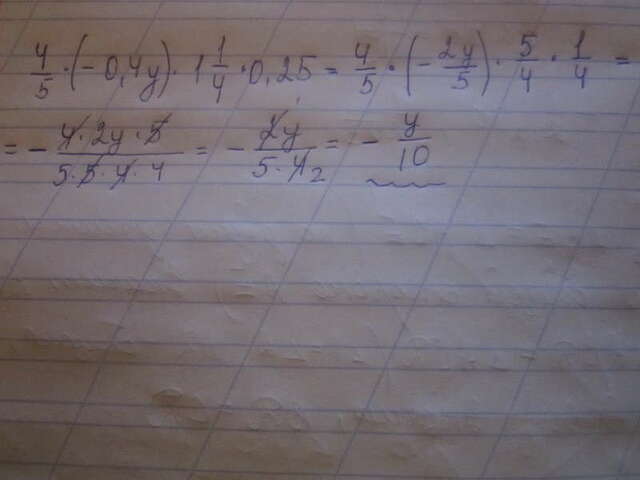 4/5 · (−0,4y) · 1 1/4 · 0,25 = 4/5 · (−2y/5) · 5/4 · 1/4 =
= − 4·2y·5/5·5·4·4 = − 2y/5·4 2 = − y/10